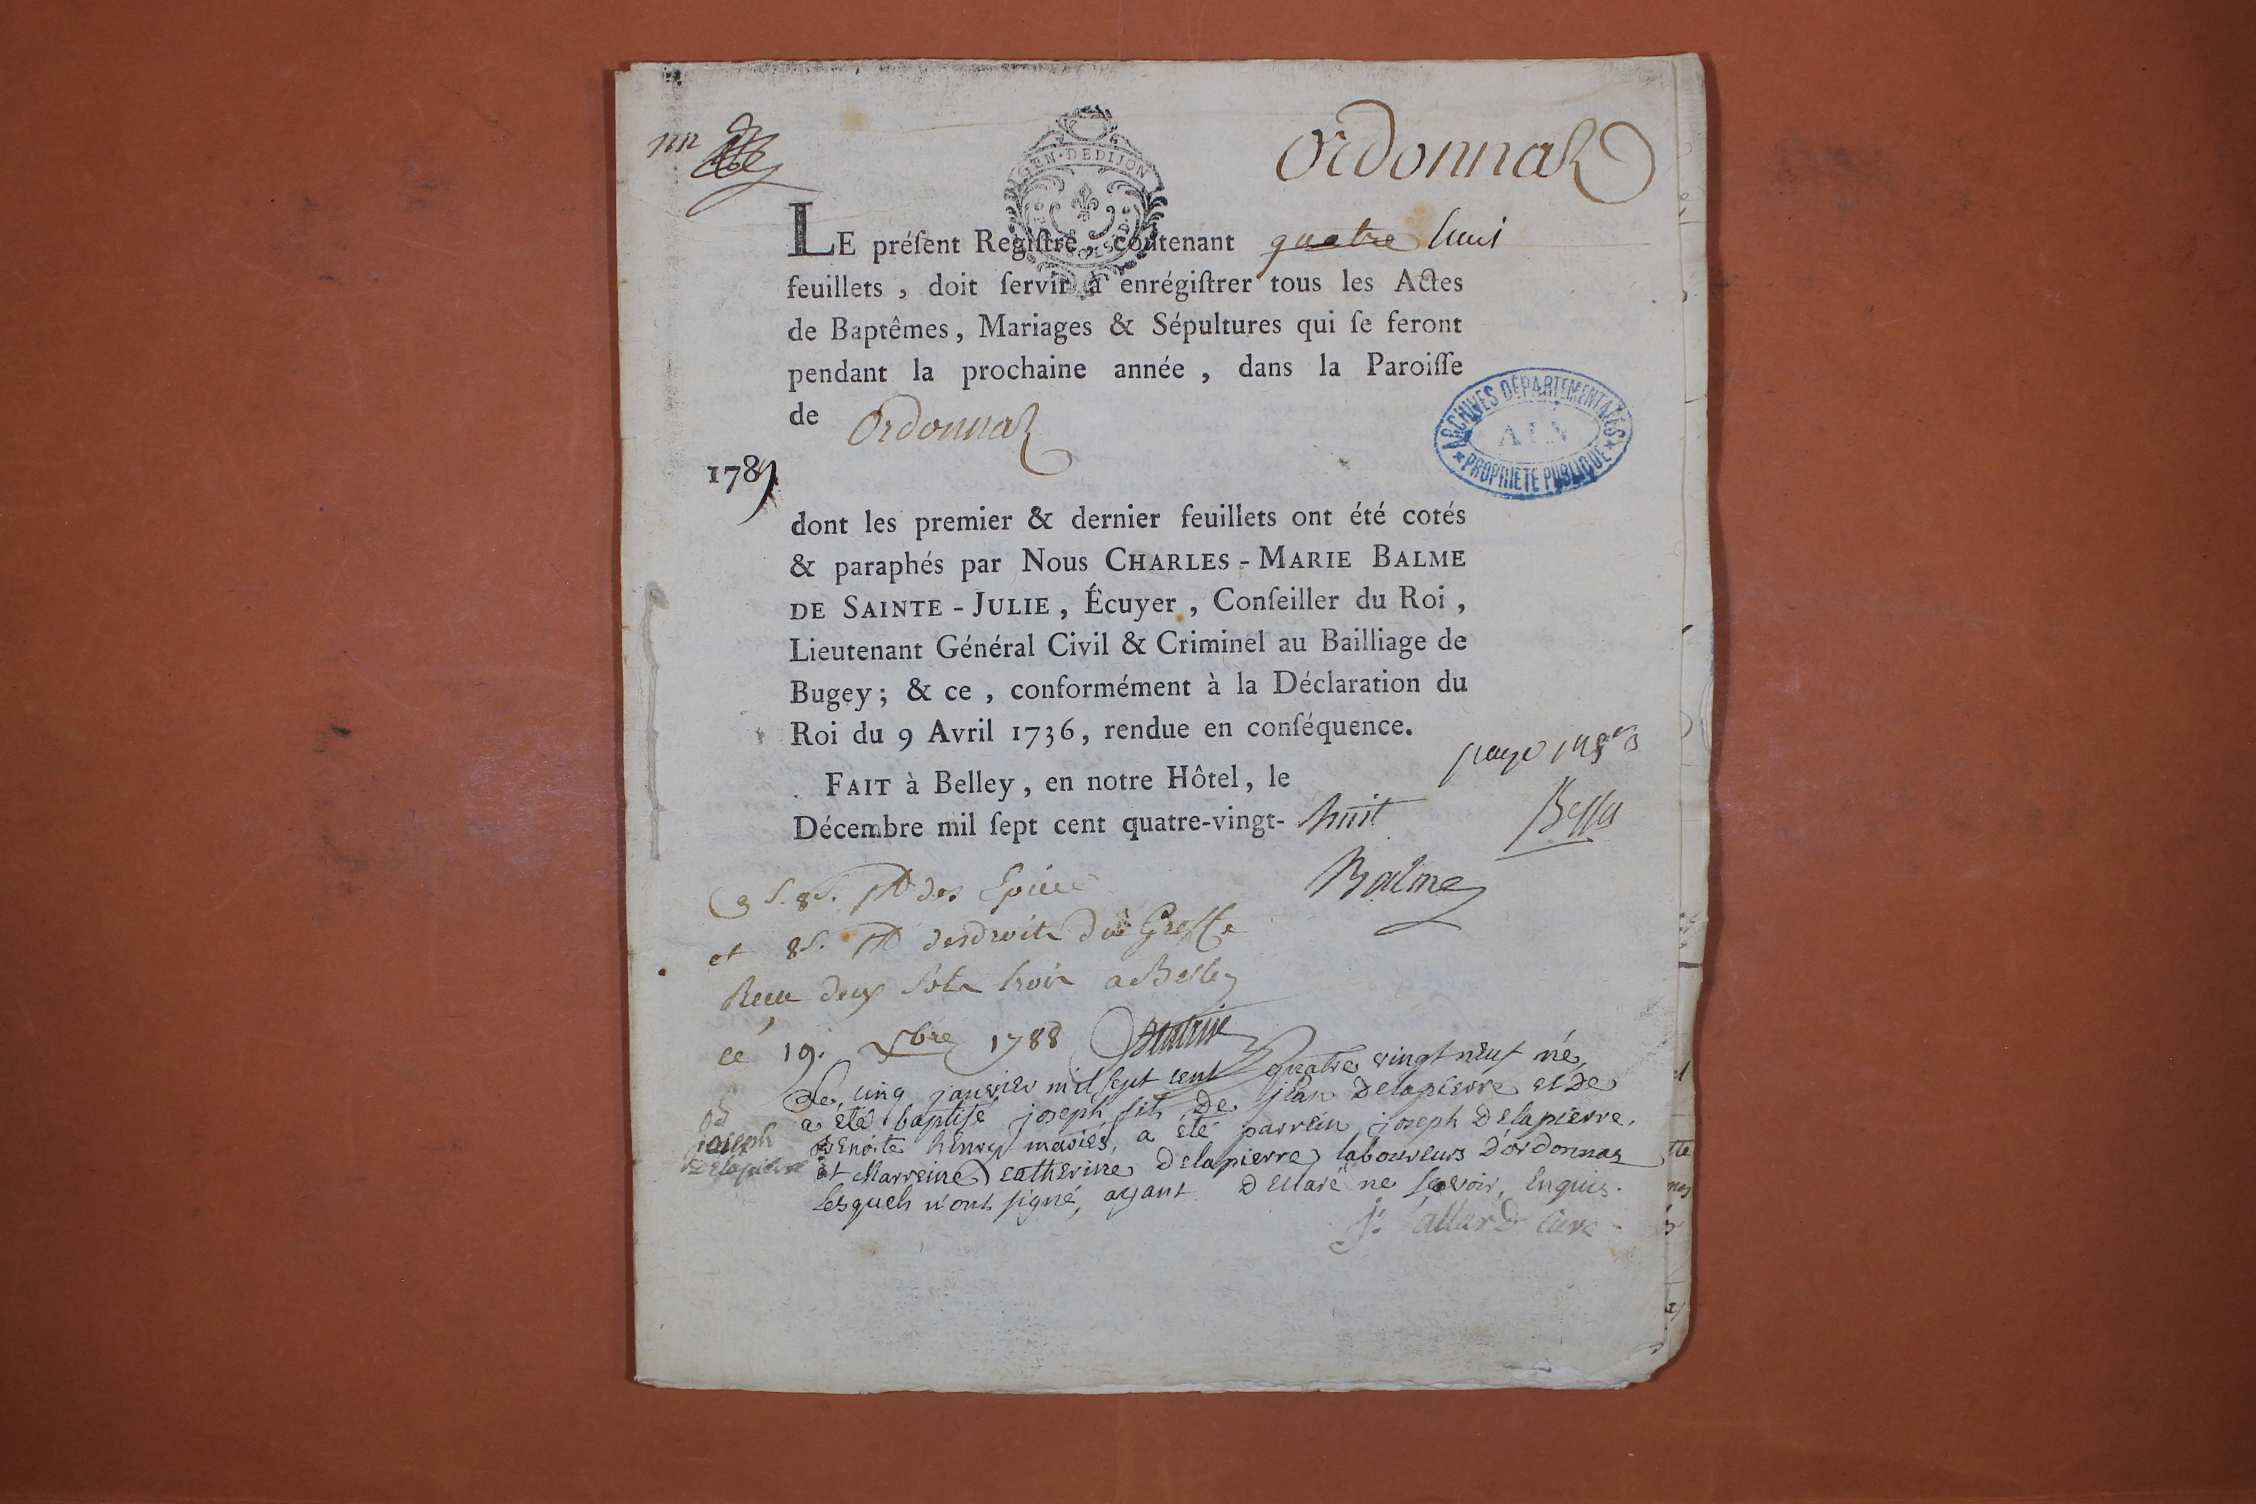 Ordonnaz
GEN · DE DIJON
LE préſent Regiſtre, contenant quatre huit
feuillets , doit ſervir à enrégiſtrer tous les Actes
de Baptêmes, Mariages & Sépultures qui ſe feront
pendant la prochaine année , dans la Paroiſſe
de Ordonnaz
ARCHIVES DÉPARTEMENTALES
AIN
PROPRIETE PUBLIQUE
1789
dont les premier & dernier feuillets ont été cotés
& paraphés par Nous CHARLES - MARIE BALME
DE SAINTE - JULIE , Écuyer , Conſeiller du Roi ,
Lieutenant Général Civil & Criminel au Bailliage de
Bugey ; & ce , conformément à la Déclaration du
Roi du 9 Avril 1736, rendue en conſéquence.
FAIT à Belley , en notre Hôtel, le
Décembre mil ſept cent quatre-vingt- huit
Balme
des Epices
et 8s. des droits du Greffe
Reçu deux sols trois a Belley
ce 19. Xbre 1788
Le cinq janvier mil sept cent quatre vingt neuf né,
a été baptisé joseph fils de jean Delapierre et de
Benoite henry mariés, a été parrein joseph Delapierre,
et Marreine catherine Delapierre laboureurs D'ordonnaz
Lesquels n'ont signé, ayant Declaré ne sçavoir, Enquis.
joseph
Delapierre
j. allard Curé